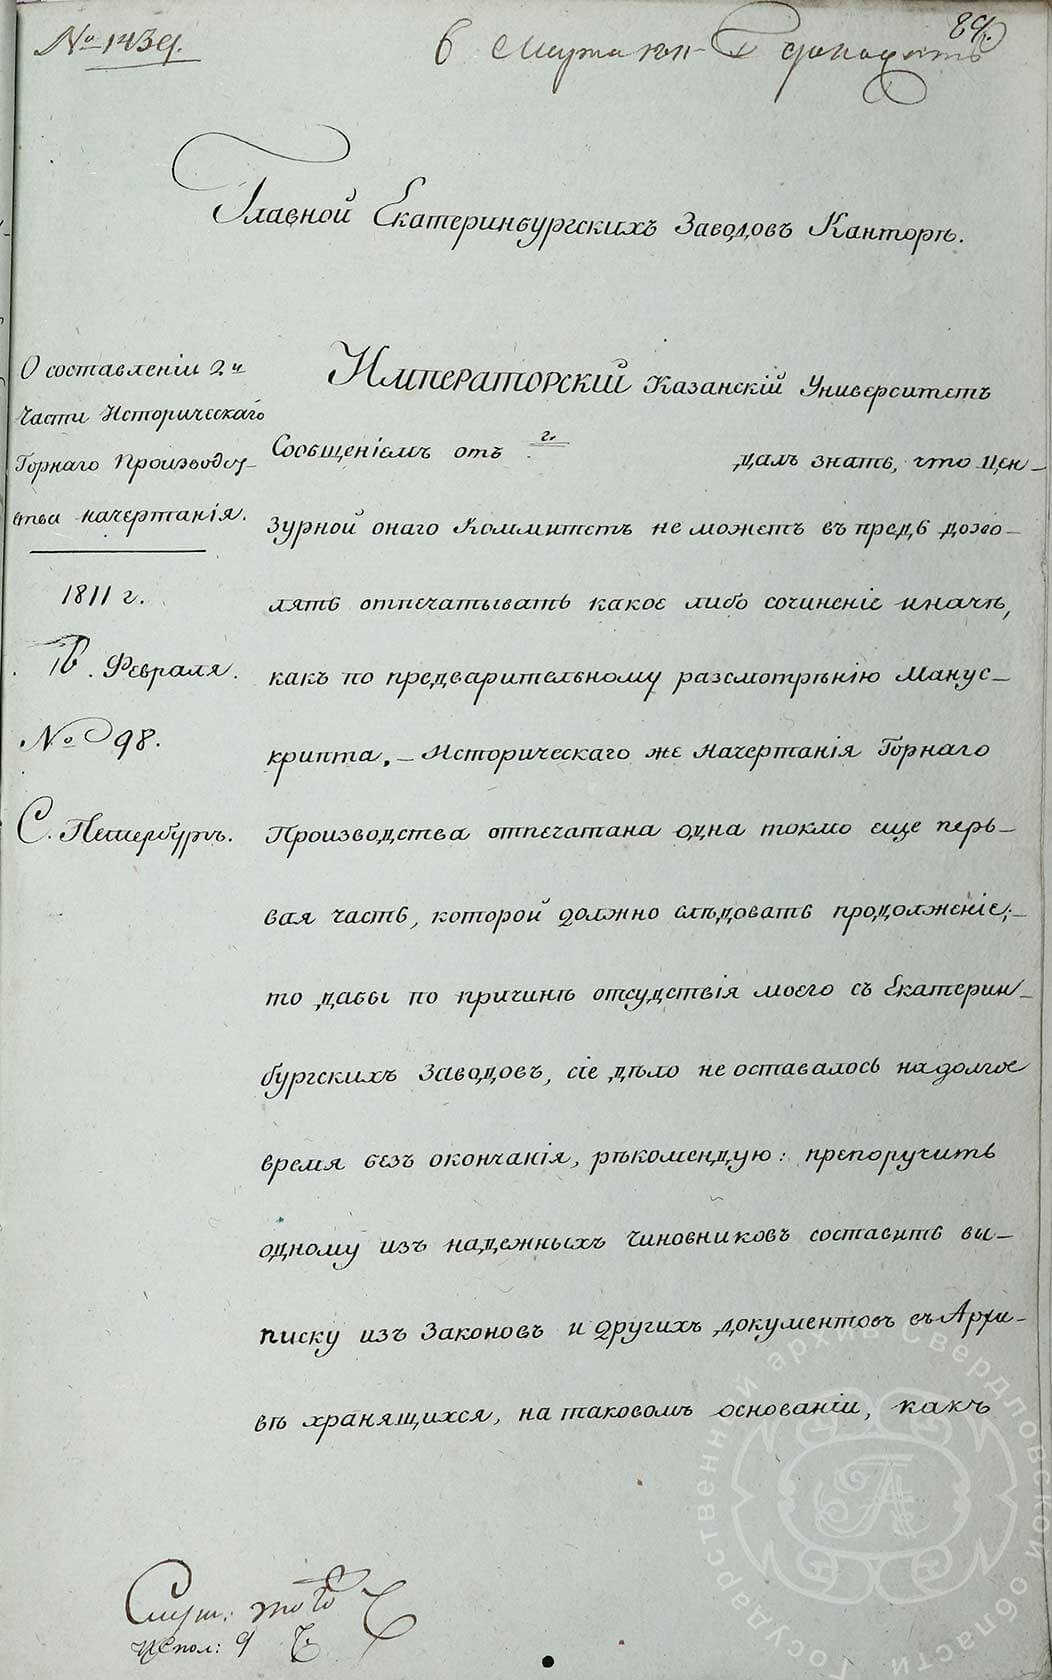 № 1439.
89.
6 Марта
Главной Екатеринбургскихъ Заводовъ Канторѣ.
О составленіи 2й
Части Историческаго
Горнаго Производ-
ства начертанія.
1811 г.
16. Февраля.
№ 98.
С. Петербургъ.
Императорскій Казанскій Университетъ
Сообщеніемъ отъ далъ знать, что Цен-
зурной онаго Коммитетъ не можетъ въ предь дозво-
лять отпечатывать какое либо сочиненіе иначѣ,
какъ по предварительному разсмотрѣнію Манус-
крипта. – Историческаго же Начертанія Горнаго
Производства отпечатана одна токмо еще перь-
вая часть, которой должно слѣдовать продолженіе;–
то дабы по причинѣ отсудствія моего съ Екатерин-
бургскихъ Заводовъ, сіе дѣло не оставалось на долгое
время безъ окончанія, рѣкомендую: препоручить
одному изъ надежныхъ Чиновниковъ составить вы-
писку изъ Законовъ и другихъ документовъ въ Архи-
вѣ хранящихся, на таковомъ основаніи, какъ
Испол: 9
Государственный архив Свердловской области